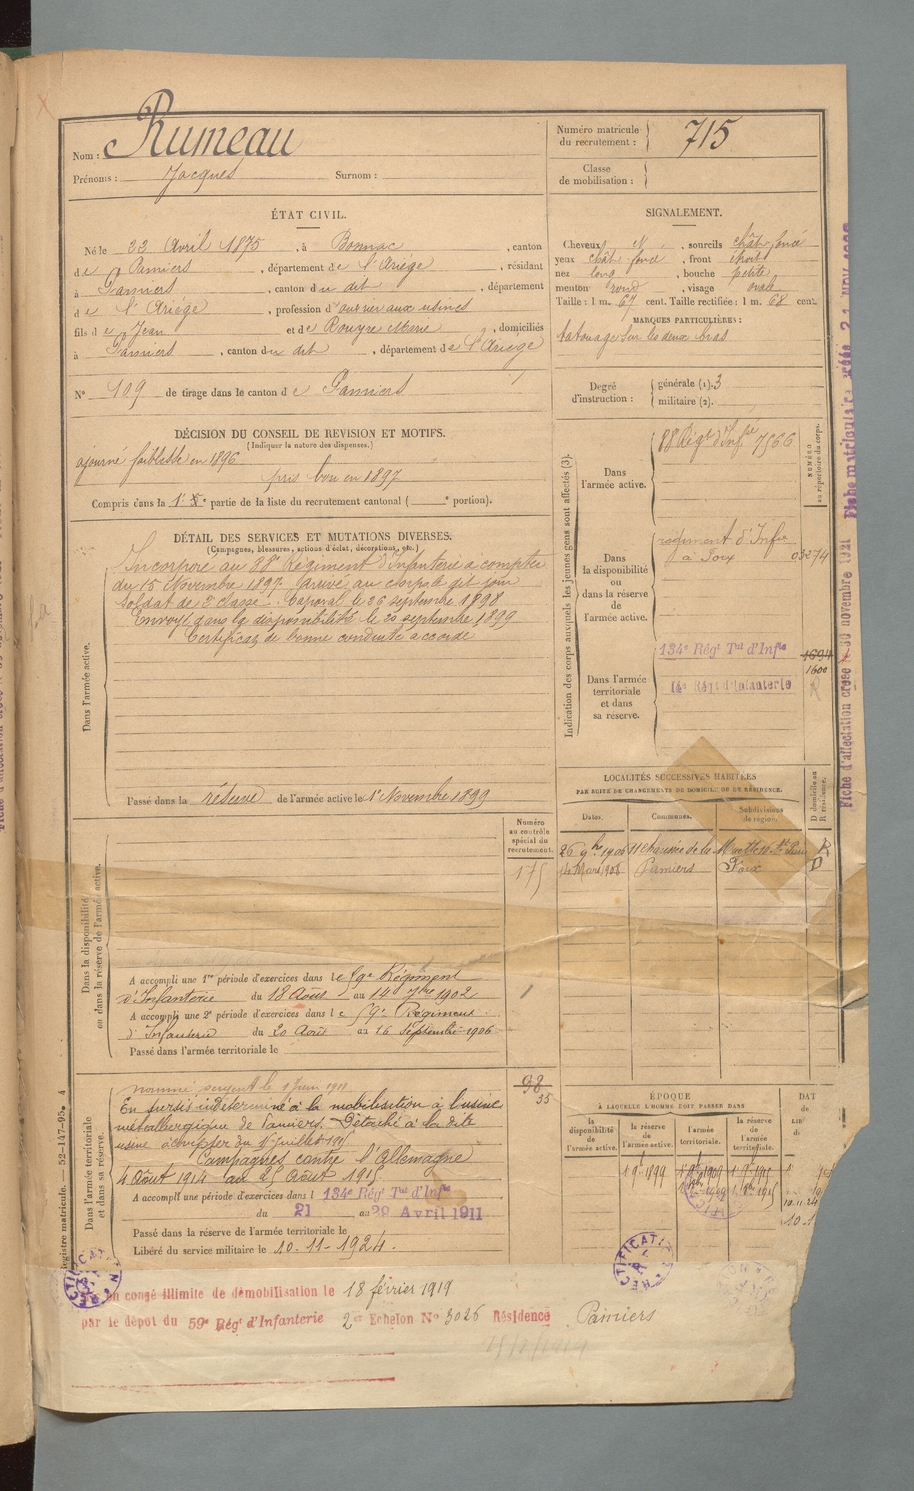 Nom : Rumeau
Prénoms : Jacques Surnom :
Numéro matricule du recrutement : 715
Classe de mobilisation :
ÉTAT CIVIL.
Né le 22 Avril 1875, à Bonnac, canton
de Pamiers, département de l'Ariège, résidant
à Pamiers, canton du dit, département
de l'Ariège, profession d'ouvrier aux usines
fils de Jean et de Rouyre Marie, domiciliés
à Pamiers, canton du dit, département de l'Ariège
N° 109 de tirage dans le canton de Pamiers
SIGNALEMENT.
Cheveux N, sourcils chât. foncé
yeux chât. foncé, front étroit
nez long, bouche petite
menton rond, visage ovale
Taille : 1 m. 67 cent. Taille rectifiée : 1 m. 68 cent.
MARQUES PARTICULIÈRES :
tatouage sur les deux bras
Degré d'instruction : générale (1). 3
militaire (2).
DÉCISION DU CONSEIL DE REVISION ET MOTIFS.
(Indiquer la nature des dispenses.)
ajourné faiblesse en 1896
pris bon en 1897
Compris dans la 1e partie de la liste du recrutement cantonal ( e portion).
DÉTAIL DES SERVICES ET MUTATIONS DIVERSES.
(Campagnes, blessures, actions d'éclat, décorations, etc.)
Dans l'armée active.
Incorporé au 88e Régiment d'Infanterie à compter
du 15 Novembre 1897. Arrivé au corps le dit jour
soldat de 2e classe. Caporal le 26 septembre 1898
Envoyé dans la disponibilité le 20 septembre 1899
Certificat de bonne conduite accordé
Passé dans la réserve de l'armée active le 1er Novembre 1899
Indication des corps auxquels les jeunes gens sont affectés (3).
NUMÉRO au répertoire du corps.
Dans l'armée active.
88 Régt d'Infie 7566
Dans la disponibilité ou dans la réserve de l'armée active.
régiment d'Infie
à Foix 03274
Dans l'armée territoriale et dans sa réserve.
134e Régt Tal d'Infie 1694
1600
14e Régt d'Infanterie R
LOCALITÉS SUCCESSIVES HABITÉES
PAR SUITE DE CHANGEMENTS DE DOMICILE OU DE RÉSIDENCE.
Dates. Communes. Subdivisions de région. D domicile ou R résidence.
26 9bre 1906 11 chaussée de la Muette R
14 Mars 1908 Pamiers Foix D
Dans la disponibilité ou dans la réserve de l'armée active.
Numéro au contrôle spécial du recrutement.
175
A accompli une 1re période d'exercices dans le 59e Régiment
d'Infanterie du 18 Août au 14 7bre 1902
A accompli une 2e période d'exercices dans le 59e Régiment
d'Infanterie du 20 Août au 16 Septembre 1906
Passé dans l'armée territoriale le
Dans l'armée territoriale et dans sa réserve.
98
35
nommé sergent le
En sursis indéterminé à la mobilisation à l'usine
métallurgique de Pamiers. Détaché à la dite
usine à compter du 1er juillet
Campagnes contre l'Allemagne
4 Août 1914 au 25 Août 1915
A accompli une période d'exercices dans l 134e Régt Tal d'Infie
du 21 au 29 Avril 1911
Passé dans la réserve de l'armée territoriale le
Libéré du service militaire le 10-11-1924.
ÉPOQUE
À LAQUELLE L'HOMME DOIT PASSER DANS
la disponibilité de l'armée active. la réserve de l'armée active. l'armée territoriale. la réserve de l'armée territoriale.
DAT
de
LIB
du
1 9bre 1899 1 9bre 1909 1 9bre 1915
10.11.24
RECTIFICATION
en congé illimité de démobilisation le 18 février 1919
par le dépôt du 59e Régt d'Infanterie 2e Echelon N° 3026 Résidence Pamiers
Registre matricule. — 52-147-95. 4
Fiche matriculaire créée
Fiche d'affectation créée 30 novembre 1921